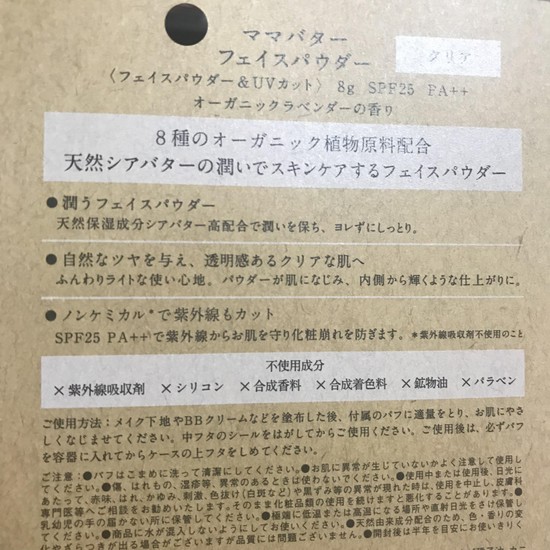 ママバター
フェイスパウダー
クリア
〈フェイスパウダー＆UVカット〉 8g SPF25 PA++
オーガニックラベンダーの香り
8種のオーガニック植物原料配合
天然シアバターの潤いでスキンケアするフェイスパウダー
●潤うフェイスパウダー
天然保湿成分シアバター高配合で潤いを保ち、ヨレずにしっとり。
●自然なツヤを与え、透明感あるクリアな肌へ
ふんわりライトな使い心地。パウダーが肌になじみ、内側から輝くような仕上がりに。
●ノンケミカル*で紫外線もカット
SPF25 PA++で紫外線からお肌を守り化粧崩れを防ぎます。*紫外線吸収剤不使用のこと
不使用成分
×紫外線吸収剤 ×シリコン ×合成香料 ×合成着色料 ×鉱物油 ×パラベン
ご使用方法：メイク下地やBBクリームなどを塗布した後、付属のパフに適量をとり、お肌にやさ
しくなじませてください。中フタのシールをはがしてからご使用ください。ご使用後は、必ずパフ
を容器に入れてからケースの上フタをしめてください。
ご注意：●パフはこまめに洗って清潔にしてください。●お肌に異常が生じていないかよく注意して使用し
てください。●傷、はれもの、湿疹等、異常のあるときは使わないでください。●使用中または使用後、日光に
あたって、赤味、はれ、かゆみ、刺激、色抜け(白斑など)や黒ずみ等の異常が現れた時は、使用を中止し、皮膚科
専門医等へご相談をお勧めいたします。そのまま化粧品類の使用を続けますと悪化することがあります。●
乳幼児の手の届かない所に保管してください。●極端に低温または高温になる場所や直射日光をさけ保管し
てください。●商品に水が混入しないようにしてお使いください。●天然由来成分配合のため、色・香りの変
化やざらつきが出る場合がございますが品質には問題ございません。●開封後は半年を目安にお使いきりく